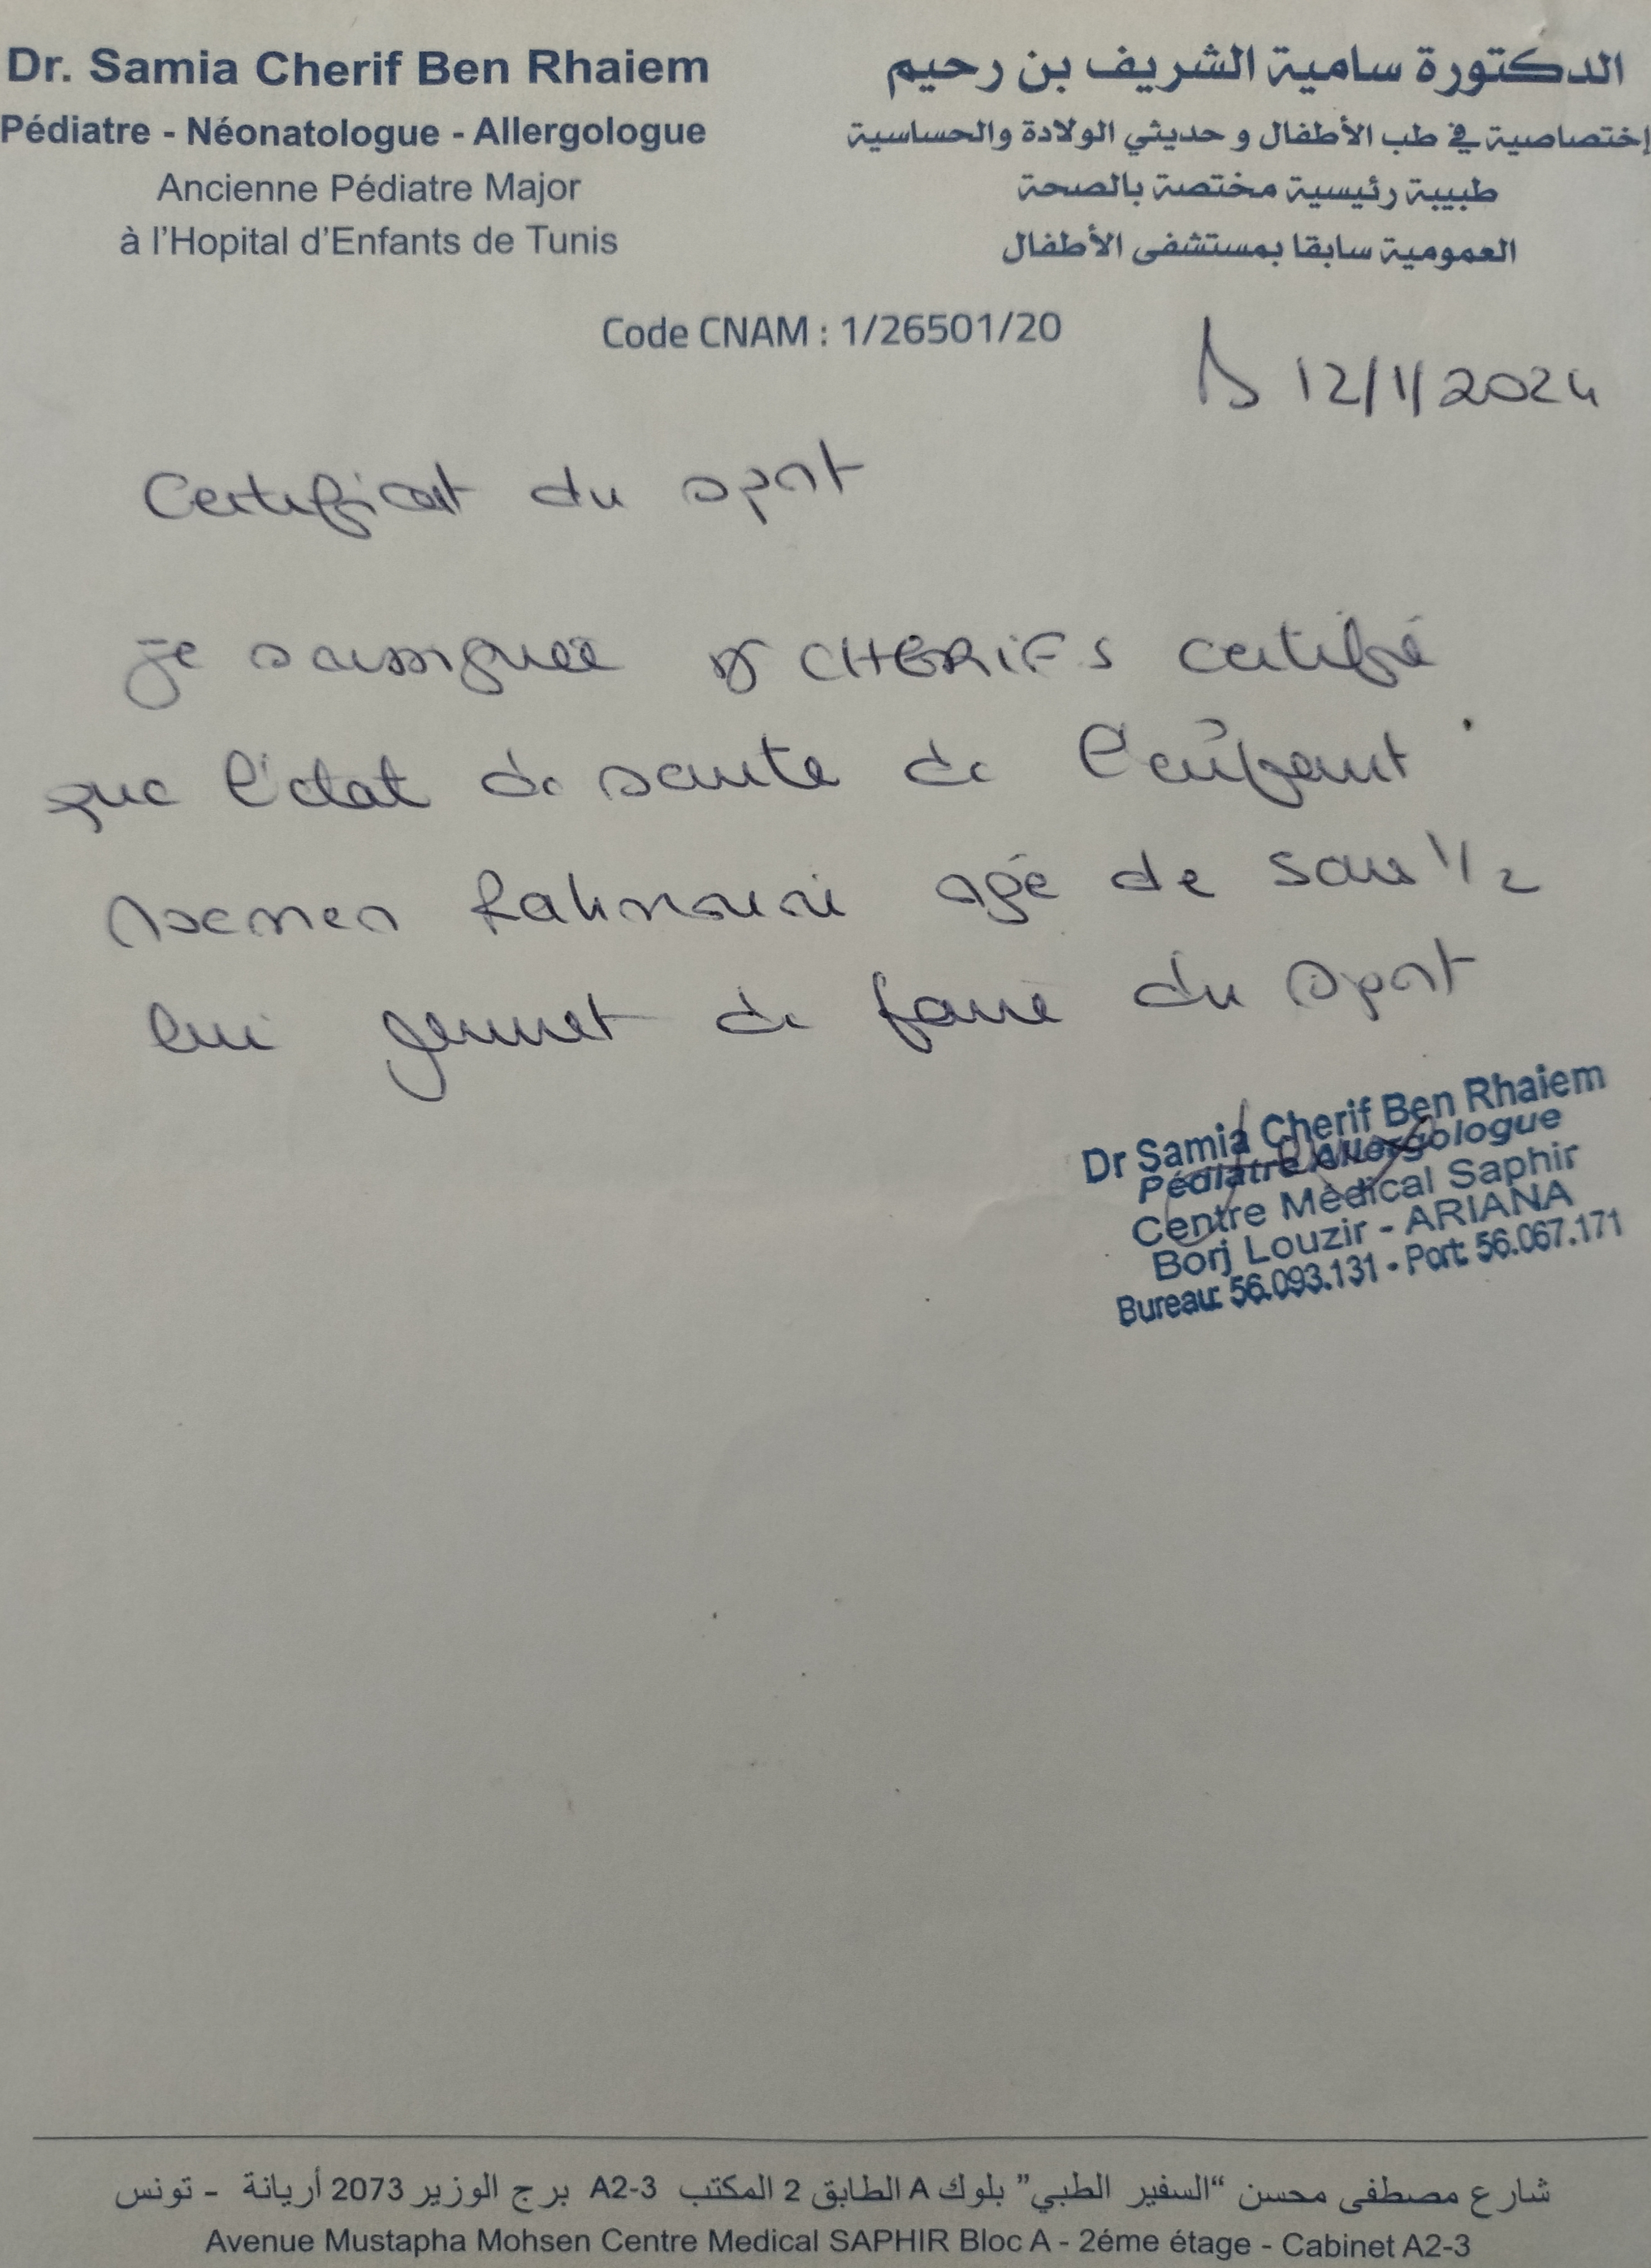 Dr. Samia Cherif Ben Rhaiem
Pédiatre - Néonatologue - Allergologue
Ancienne Pédiatre Major
à l'Hopital d'Enfants de Tunis
الدكتورة سامية الشريف بن رحيم
إختصاصية في طب الأطفال و حديثي الولادة والحساسية
طبيبة رئيسية مختصة بالصحة
العمومية سابقا بمستشفى الأطفال
Code CNAM : 1/26501/20
12/1/2024
Certificat du sport
je soussignée Dr CHERIF S certifie
que l'état de santé de l'enfant
Rahmouni agé de 5 ans 1/2
lui permet de faire du sport
Dr Samia Cherif Ben Rhaiem
Pédiatre Allergologue
Centre Médical Saphir
Borj Louzir - ARIANA
Bureau: 56.093.131 - Port: 56.067.171
شارع مصطفى محسن “السفير الطبي” بلوك A الطابق 2 المكتب A2-3 برج الوزير 2073 أريانة - تونس
Avenue Mustapha Mohsen Centre Medical SAPHIR Bloc A - 2éme étage - Cabinet A2-3